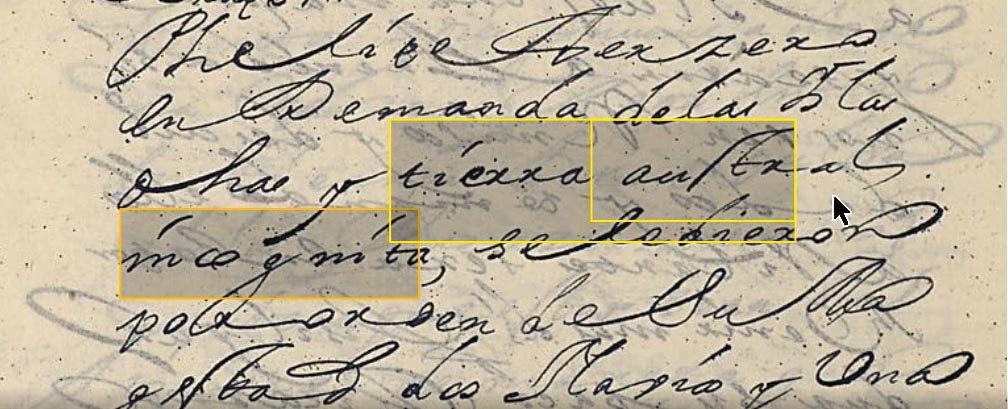 Phelipe Terzero
en Demanda de las Islas
ohas y tierra austral
incognita, se le dieron
por orden de Su Ma
gestad dos Navios y Una